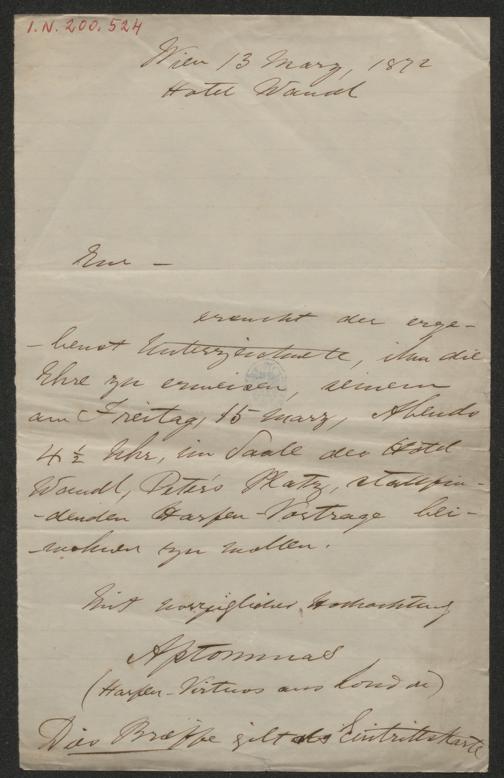 I.N. 200.524
Wien 13 Marz, 1872
Hotel Wandl
Eur —
ersucht der erge-
-benst Unterzeichnete, ihm die
Ehre zu erweisen, seinem
am Freitag, 15 Marz, Abends
4 ½ Uhr, im Saale des Hotel
Wandl, Peter's Platz, stattfin-
-denden Harfen-Vortrage bei-
-wohnen zu wollen.
Mit vorzüglicher Hochachtung
Aptommas
(Harfen-Virtuos aus London)
Dies gilt als Eintrittskarte